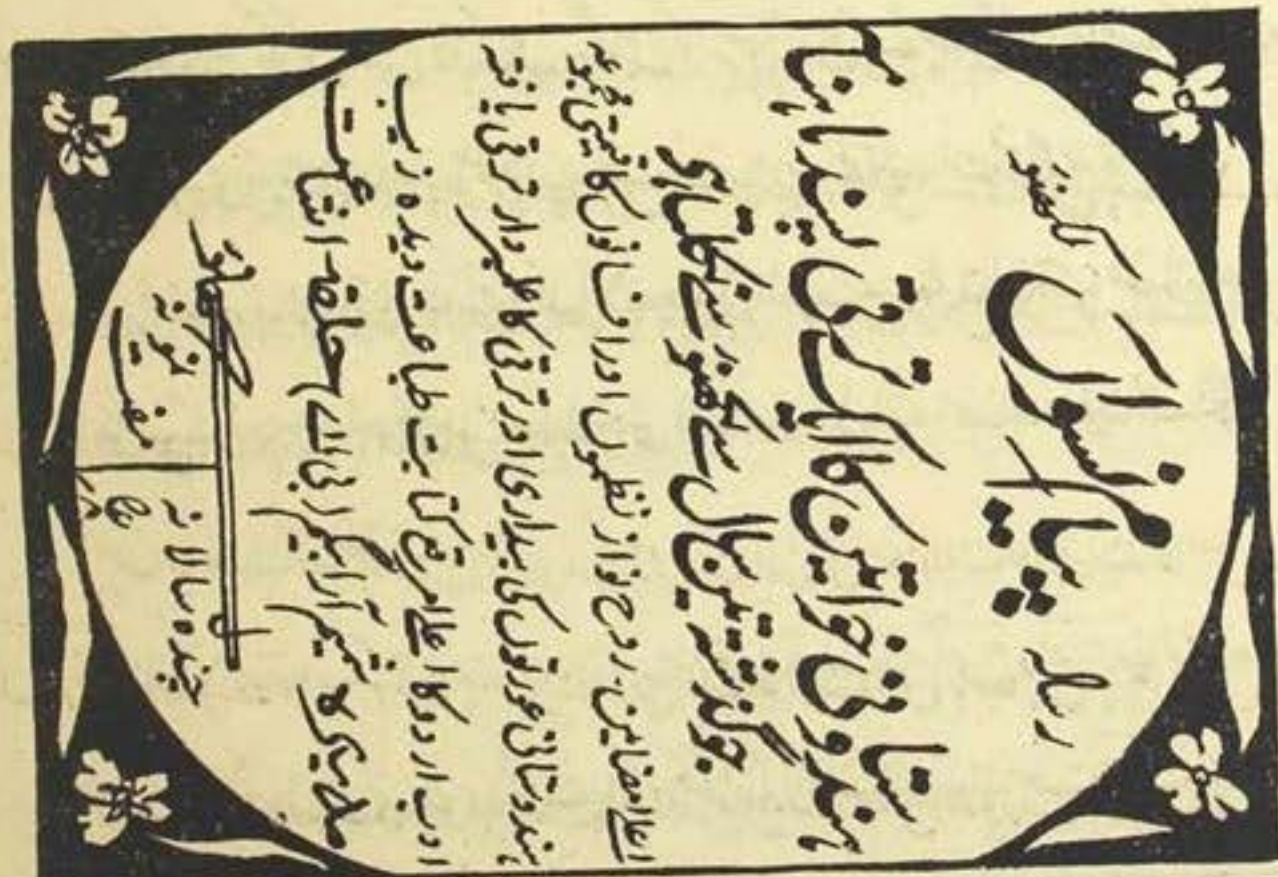 رسالہ پیام نسواں لکھنؤ
ہندوستانی خواتین کا ایک ترقی پسند ماہنامہ
جو گذشتہ تین سال سے لکھنؤ سے نکلتا ہے
اعلےٰ مضامین۔ روح نواز نظموں اور افسانوں کا قیمتی مجموعہ
ہندوستانی عورتوں کی بیداری اور ترقی کا علمبردار ترقی یافتہ
ادب اردو کا اعلےٰ مرقع کتابت طباعت دیدہ زیب
مدیرہ
چندہ سالانہ
نمونہ
مفت